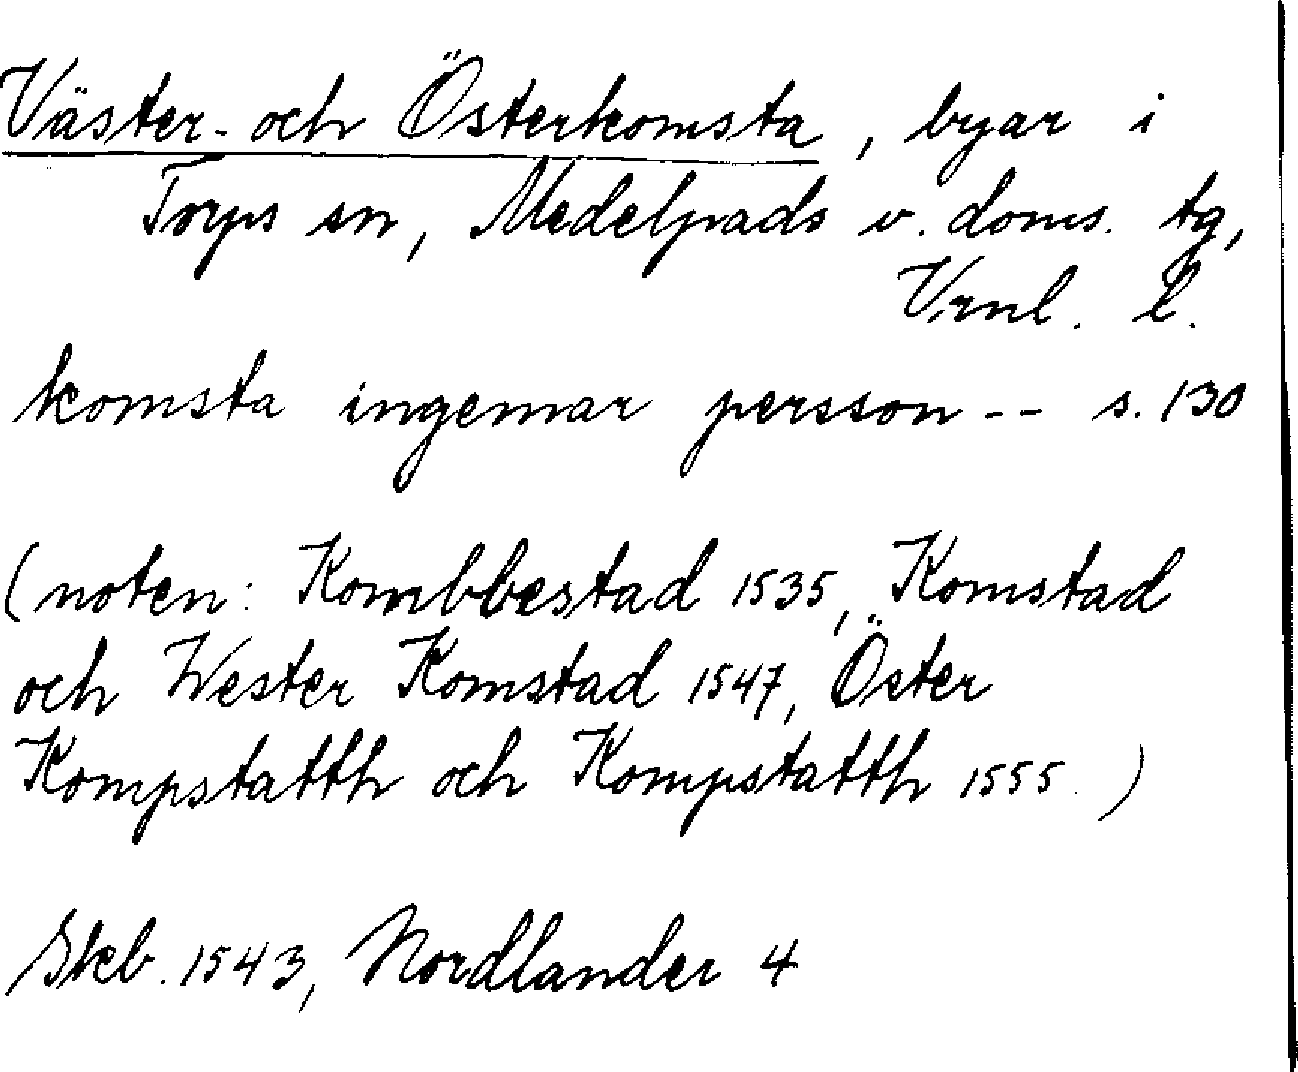 Väster- och Österkomsta, byar i
Torps sn, Medelpads v. doms. tg,
Vrnl. l.
komsta ingemar persson -- s. 130
(noten: Kombbestad 1535, Komstad
och Wester Komstad 1547, Öster
Kompstatth och Kompstatth 1555.)
Skb. 1543, Nordlander 4